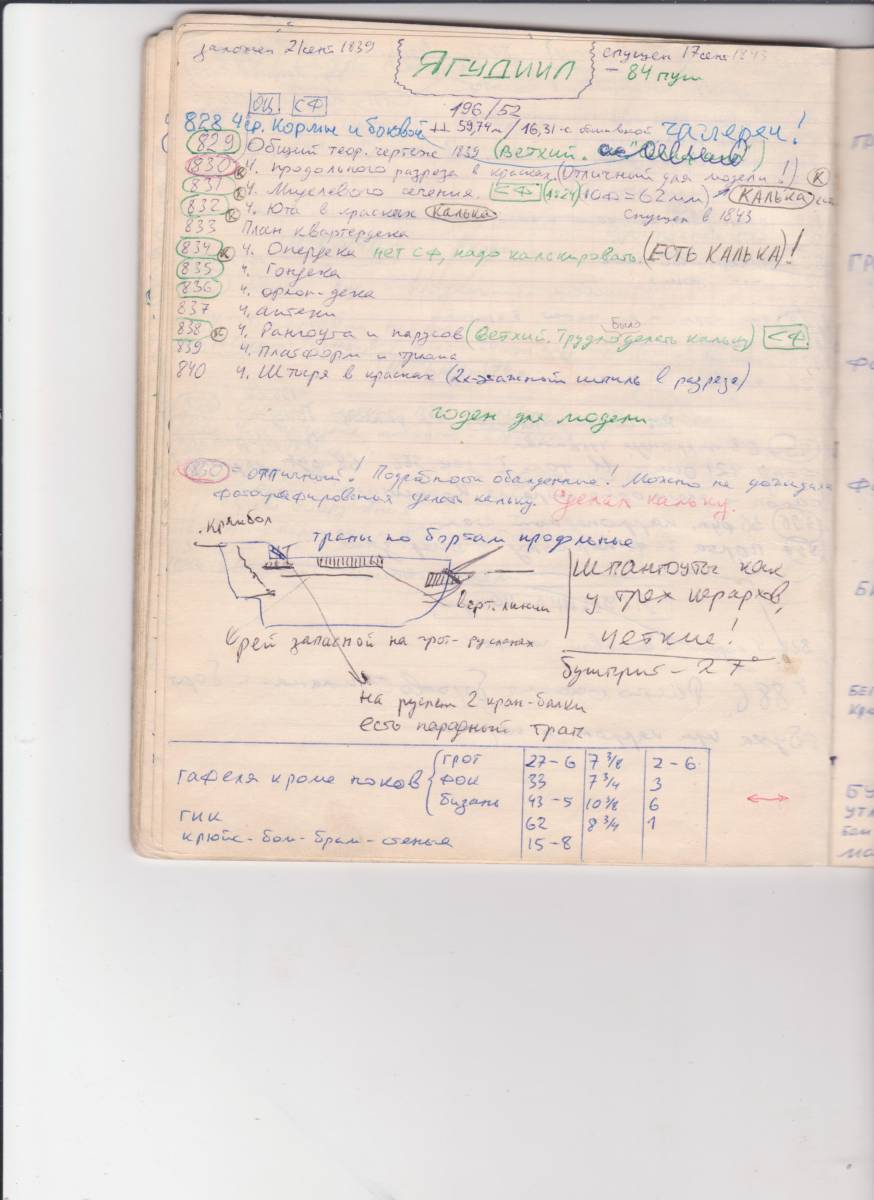 заложен 21 сент 1839
спущен 17 сент 1843
Ягудиил
– 84 пуш
ОЦ СФ
196/52
828 Ч ср. Кормы и боковой 59,74 м / 16,31 с обшивкой галереи!
829 Общий теор. чертеж 1839 (Ветхий.
830 К Ч. продольного разреза в красках (Отличный для модели!) К
831 К Ч. Миделевого сечения. СФ (1:24) = 62 мм) КАЛЬКА
832 К Ч. Юта в красках Калька
спущен в 1843
833 План квартердека
834 К Ч. Опердека нет СФ, надо калькировать. (ЕСТЬ КАЛЬКА)!
835 Ч. Гондека
836 Ч. орлоп-дека
837 Ч.
838 К Ч. Рангоута и парусов (Ветхий. Трудно было делать кальку) СФ
839 Ч. Платформ и трюма
840 Ч. Шпиля в красках (2х-этажный шпиль в разрезе)
годен для модели
830 = отличный! Подробности обалденные! Можно не дожидаясь
фотографирования делать кальку. Сделал кальку.
Крамбол
трапы по бортам продольные
верт. линии
Шпангоуты как
у трех иерархов,
четкие!
бушприт – 27°
рей запасной на грот-русленях
на руслен 2 кран-балки
есть парадный трап
гафеля кроме ноков
грот 27–6 7 3/8 2–6
фок 33 7 3/4 3
бизань 43–5 10 3/8 6
гик 62 8 3/4 1
крюйс-бом-брам-стеньга 15–8